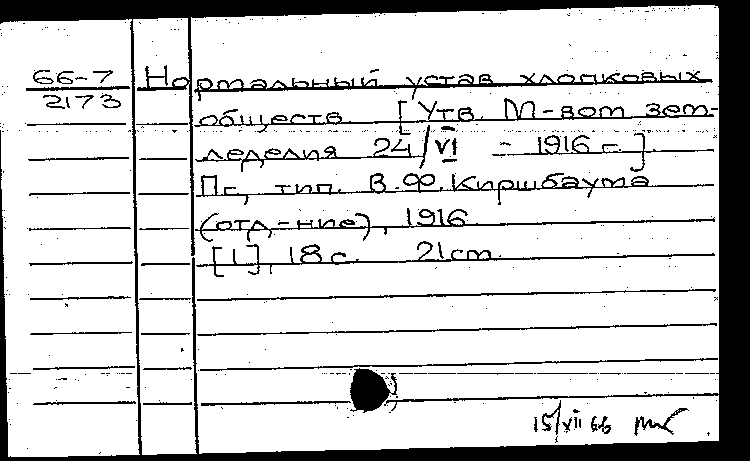 66-7 Нормальный устав хлопковых
2173 обществ. [Утв. М-вом зем-
леделия 24/VI - 1916 г.].
Пг., тип. В.Ф. Киршбаума
(отд-ние), 1916.
[1], 18 с. 21cm.
15/VII 66